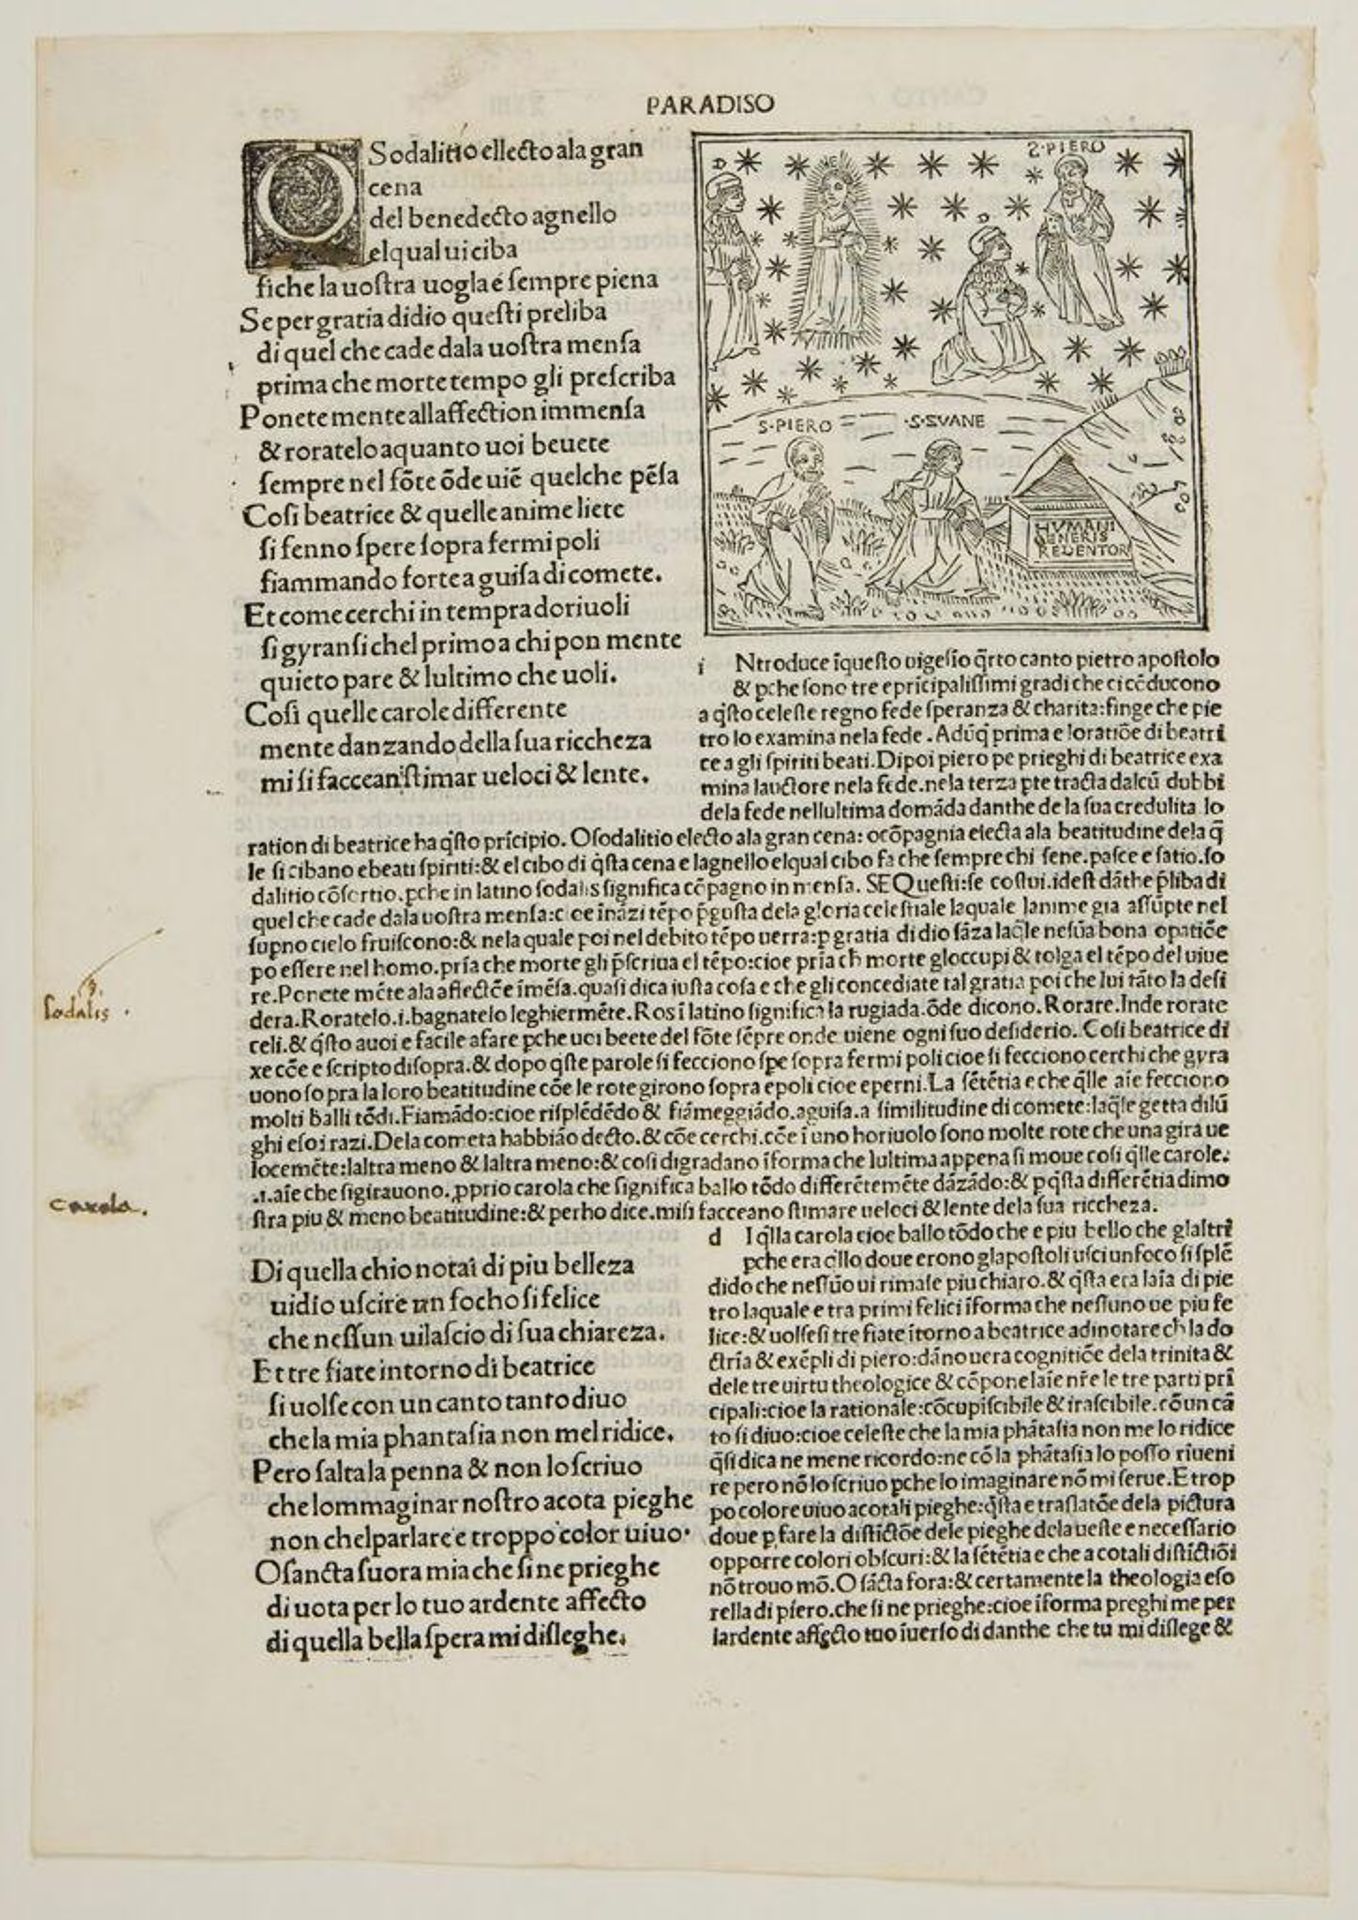 PARADISO
O Sodalitio ellecto ala gran
cena
del benedecto agnello
elqual ui ciba
ſiche la uoſtra uogla é ſempre piena
Se per gratia didio queſti preliba
di quel che cade dala uoſtra menſa
prima che morte tempo gli preſcriba
Ponete mente allaffection immenſa
& roratelo aquanto uoi beuete
ſempre nel fōte ōde uiē quelche pēſa
Coſi beatrice & quelle anime liete
ſi fenno ſpere ſopra fermi poli
fiammando forte a guiſa di comete.
Et come cerchi in tempra doriuoli
ſi gyran ſi chel primo a chi pon mente
quieto pare & lultimo che uoli.
Coſi quelle carole differente
mente danzando della ſua riccheza
mi ſi faccean ſtimar ueloci & lente.
D
E
D
S·PIERO
S·PIERO
·S·SVANE
HVMANI
GENERIS
REDENTOR
i Ntroduce īqueſto uigeſio q̄rto canto pietro apoſtolo
& pche ſono tre e prīcipaliſſimi gradi che ci cōducono
a q̄ſto celeſte regno fede ſperanza & charita: finge che pie
tro lo examina nela fede. Adūq̄ prima e loratiōe di beatri
ce a gli ſpiriti beati. Dipoi piero pe prieghi di beatrice exa
mina lauctore nela fede. nela terza pte tracta dalcū dubbi
dela fede nellultima domāda danthe de la ſua credulita lo
ration di beatrice ha q̄ſto prīcipio. Oſodalitio electo ala gran cena: ocōpagnia electa ala beatitudine dela q̄
le ſi cibano e beati ſpiriti: & el cibo di q̄ſta cena e lagnello elqual cibo fa che ſempre chi ſene. paſce e ſatio. ſo
dalitio cōſortio. pche in latino ſodalis ſignifica cōpagno in menſa. SE Queſti: ſe coſtui. ideſt dāthe p̄liba di
quel che cade dala uoſtra menſa: cioe ināzi tēpo p̄guſta dela gloria celeſtiale laquale lanime gia aſſūpte nel
ſupno cielo fruiſcono: & nela quale poi nel debito tēpo uerra: p gratia di dio ſāza laq̄le neſūa bona opatiōe
po eſſere nel homo. pria che morte gli p̄ſcriua el tēpo: cioe pria ch̄ morte gloccupi & tolga el tēpo del uiue
re. Ponete mēte ala affectiōe īmēſa. quaſi dica iuſta coſa e che gli concediate tal gratia poi che lui tāto la deſi
dera. Roratelo. i. bagnatelo leghiermēte. Ros ī latino ſignifica la rugiada. ōde dicono. Rorare. Inde rorate
celi. & q̄ſto auoi e facile afare pche uoi beete del fōte ſēpre onde uiene ogni ſuo deſiderio. Coſi beatrice di
xe cōe e ſcripto diſopra. & dopo q̄ſte parole ſi fecciono ſpe ſopra fermi poli cioe ſi fecciono cerchi che gyra
uono ſopra la loro beatitudine cōe le rote girono ſopra e poli cioe e perni. La ſētētia e che q̄lle aīe fecciono
molti balli tōdi. Fiamādo: cioe riſplēdēdo & fiāmeggiādo. a guiſa. a ſimilitudine di comete: laq̄le getta dilū
ghi e ſoi razi. Dela cometa habbiāo decto. & cōe cerchi. cōe ī uno horiuolo ſono molte rote che una gira ue
locemēte: laltra meno & laltra meno: & coſi digradano īforma che lultima appena ſi moue coſi q̄lle carole.
.i. aīe che ſi girauono. pprio carola che ſignifica ballo tōdo differētemēte dāzādo: & p q̄ſta differētia dimo
ſtra piu & meno beatitudine: & perho dice. miſi facceano ſtimare ueloci & lente dela ſua riccheza.
Sodalis .
carola.
Di quella chio notai di piu belleza
uidio uſcire un focho ſi felice
che neſſun uilaſcio di ſua chiareza.
Et tre fiate intorno di beatrice
ſi uolſe con un canto tanto diuo
che la mia phantaſia non mel ridice.
Pero ſalta la penna & non lo ſcriuo
che lommaginar noſtro acota pieghe
non chel parlare e troppo color uiuo.
O ſancta ſuora mia che ſi ne prieghe
di uota per lo tuo ardente affecto
di quella bella ſpera mi diſleghe.
d I q̄lla carola cioe ballo tōdo che e piu bello che glaltri
pche era q̄llo doue erono glapoſtoli uſci un foco ſi ſplē
dido che neſſūo ui rimaſe piu chiaro. & q̄ſta era laīa di pie
tro laquale e tra primi felici īforma che neſſuno ue piu fe
lice: & uolſeſi tre fiate ītorno a beatrice adinotare ch̄ la do
ctrīa & exēpli di piero: dāno uera cognitiōe dela trinita &
dele tre uirtu theologice & cōpone laīe nr̄e le tre parti pri
cipali: cioe la rationale: cōcupiſcibile & iraſcibile. cō un cā
to ſi diuo: cioe celeſte che la mia phātaſia non me lo ridice
q̄ſi dica ne mene ricordo: ne cō la phātaſia lo poſſo riueni
re pero nō lo ſcriuo pche lo imaginare nō mi ſerue. E trop
po colore uiuo a cotali pieghe: q̄ſta e traſlatōe dela pictura
doue p fare la diſtictōe dele pieghe dela ueſte e neceſſario
opporre colori obſcuri: & la ſētētia e che a cotali diſtictiōi
nō trouo mō. O ſācta ſora: & certamente la theologia e ſo
rella di piero. che ſi ne prieghe: cioe īforma preghi me per
lardente affecto tuo īuerſo di danthe che tu mi diſlege &